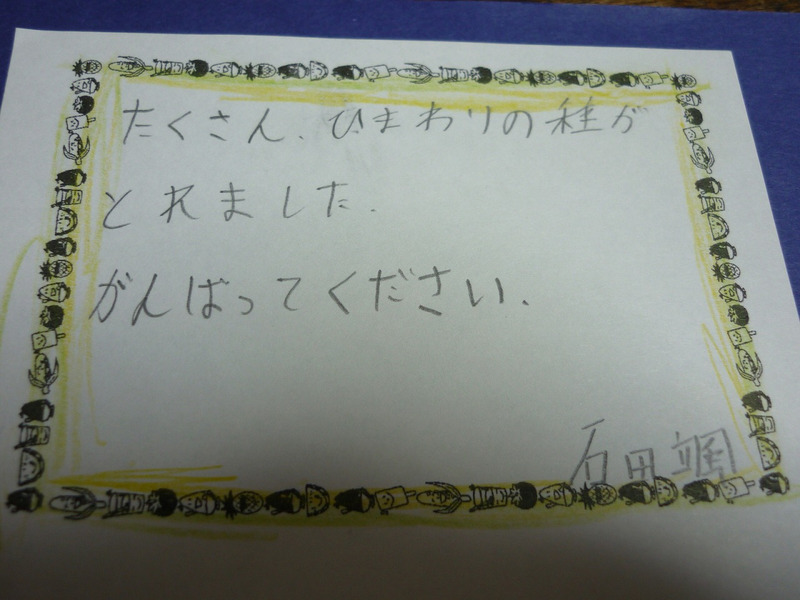 たくさん、ひまわりの種が
とれました.
がんばってください.
石田颯